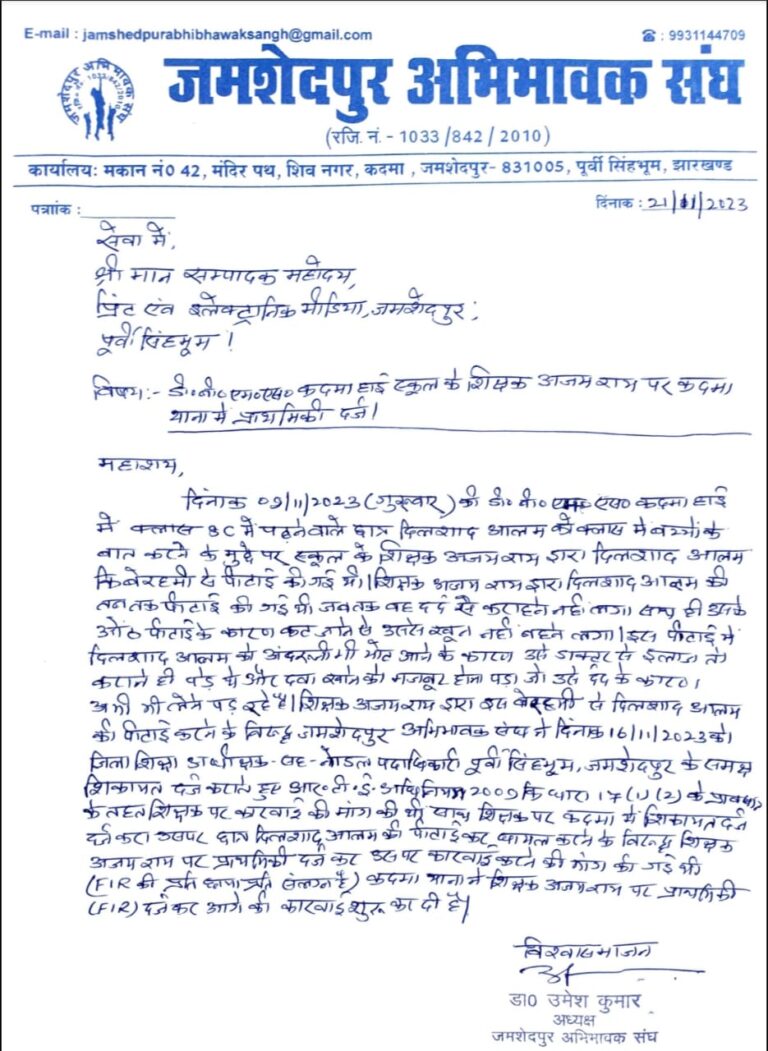 E-mail : jamshedpurabhibhawaksangh@gmail.com
☎ : 9931144709
जमशेदपुर अभिभावक संघ
जमशेदपुर अभिभावक संघ
र० नं० 1033/842/2010
(रजि. नं. - 1033 /842 / 2010)
कार्यालय: मकान नं0 42, मंदिर पथ, शिव नगर, कदमा , जमशेदपुर- 831005, पूर्वी सिंहभूम, झारखण्ड
पत्राांक :
दिनांक : 21/11/2023
सेवा में,
श्री मान सम्पादक महोदय,
प्रिंट एंव इलेक्ट्रानिक मीडिया, जमशेदपुर,
पूर्वी सिंहभूम !
विषय:- डी० बी० एम० एस० कदमा हाई स्कूल के शिक्षक अजय राय पर कदमा
थाना में प्राथमिकी दर्ज।
महाशय,
दिनांक 09/11/2023 (गुरूवार) को डी० बी० एम० एस० कदमा हाई
में क्लास 8C में पढ़ने वाले छात्र दिलशाद आलम को क्लास में बच्चों के
बात करने के मुद्दे पर स्कूल के शिक्षक अजय राय द्वारा दिलशाद आलम
कि बेरहमी से पीटाई की गई थी। शिक्षक अजय राय द्वारा दिलशाद आलम की
तबतक पीटाई की गई थी जबतक वह दर्द से कराहने नहीं लगा। साथ ही उसके
ओंठ पीटाई के कारण कट जाने से उससे खून नहीं बहने लगा। इस पीटाई में
दिलशाद आलम को अंदरूनी भी चोट आने के कारण उसे डाक्टर से इलाज तो
कराने ही पड़े थे और दवा खाने को मजबूर होना पड़ा जो उसे दर्द के कारण
अभी भी लेने पड़ रहे है। शिक्षक अजय राय द्वारा इस बेरहमी से दिलशाद आलम
की पीटाई करने के विरूद्ध जमशेदपुर अभिभावक संघ ने दिनांक 16/11/2023 को
जिला शिक्षा अधीक्षक-सह-नोडल पदाधिकारी पूर्वी सिंहभूम, जमशेदपुर के समक्ष
शिकायत दर्ज कराते हुए आर० टी० ई० अधिनियम 2009 कि धारा 17(1)(2) के प्रावधान
के तहत शिक्षक पर कारवाई की मांग की थी साथ शिक्षक पर कदमा में शिकायत दर्ज
दर्ज करा उसपर छात्र दिलशाद आलम की पीटाई कर घायल करने के विरूद्ध शिक्षक
अजय राय पर प्राथमिकी दर्ज कर उस पर कारवाई करने की मांग की गई थी
(FIR की प्रति छाया प्रति संलग्न है) कदमा थाना ने शिक्षक अजय राय पर प्राथमिकी
(FIR) दर्ज कर आगे की कारवाई शुरू कर दी है।
विश्वासभाजन
डा0 उमेश कुमार
अध्यक्ष
जमशेदपुर अभिभावक संघ